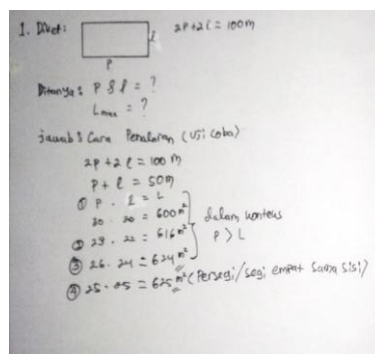 1. Diket:
2P+2l = 100m
l
P
Ditanya: P & l = ?
Lmax = ?
Jawab: Cara Penalaran (Uji coba)
2p + 2l = 100 m
P + l = 50m
① P . l = L
30 . 20 = 600m²
② 28 . 22 = 616m²
③ 26 . 24 = 624m²
dalam konteks
P > L
④ 25 . 25 = 625m² (Persegi/segi empat sama sisi)